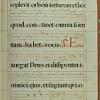 replevit orbem terrarum et hoc
quod continet omnia scien
tiam habet vocis
surgat Deus et dissipentur i
nimici eius et fugiant qui o